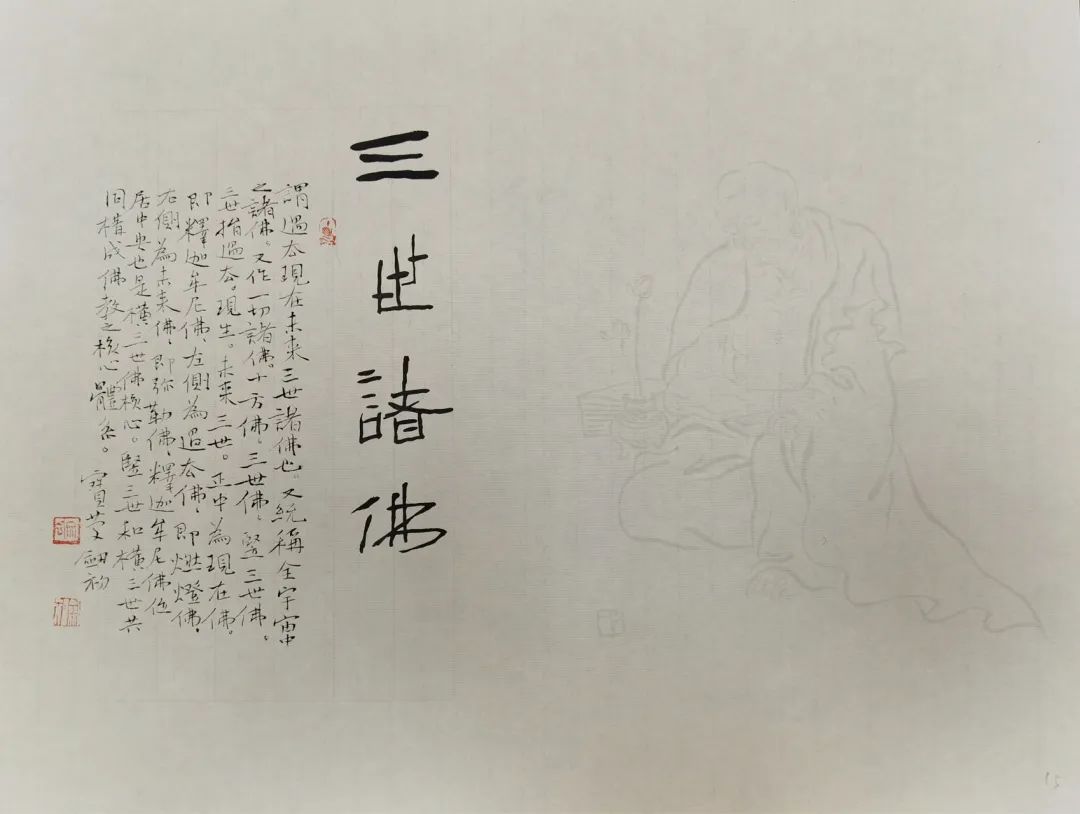 三世諸佛
謂過去現在未来三世諸佛也。又統稱全宇宙中
之諸佛。又作一切諸佛。十方佛、三世佛、竪三世佛。
三世指過去。現生。未来三世。正中為現在佛。
即釋迦牟尼佛、左側為過去佛、即燃燈佛、
右側為未来佛、即弥勒佛、釋迦牟尼佛位
居中央也是横三世佛核心。竪三世和横三世共
同構成佛教之核心體系。
15